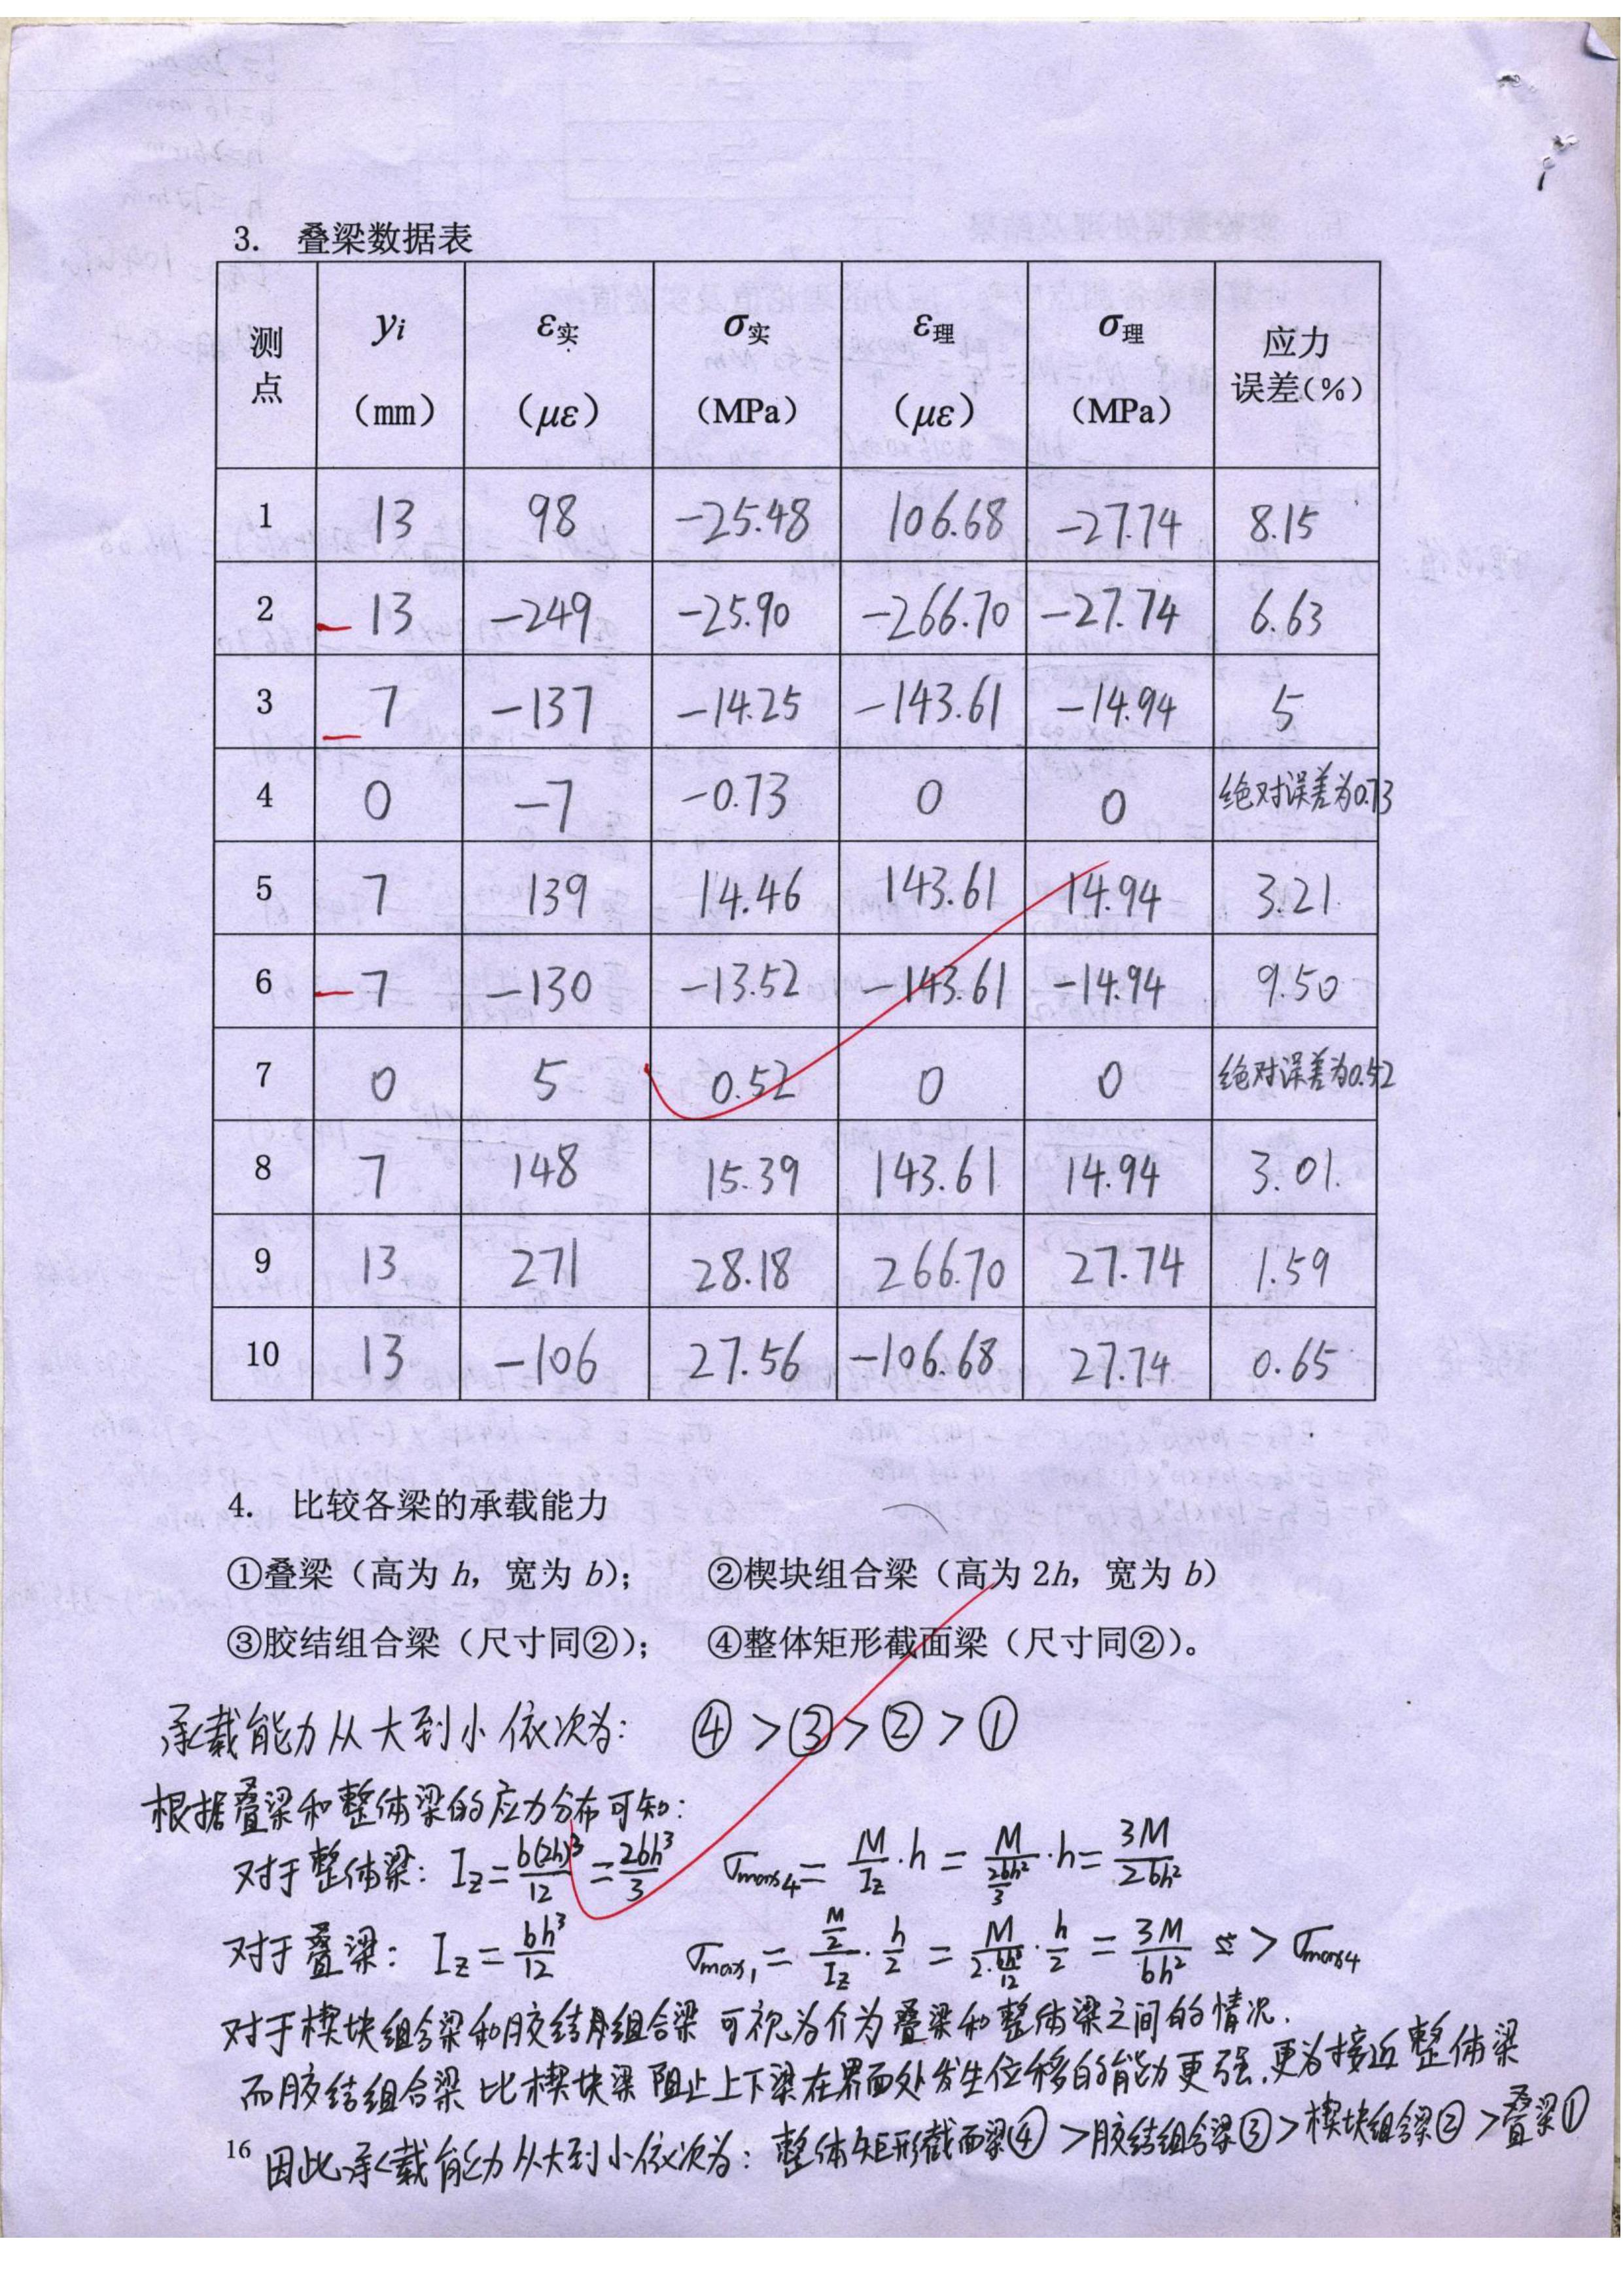 3. 叠梁数据表
测点 yi (mm) ε实 (με) σ实 (MPa) ε理 (με) σ理 (MPa) 应力误差(%)
1 13 98 -25.48 106.68 -27.74 8.15
2 -13 -249 -25.90 -266.70 -27.74 6.63
3 -7 -137 -14.25 -143.61 -14.94 5
4 0 -7 -0.73 0 0 绝对误差为0.73
5 7 139 14.46 143.61 14.94 3.21
6 -7 -130 -13.52 -143.61 -14.94 9.50
7 0 5 0.52 0 0 绝对误差为0.52
8 7 148 15.39 143.61 14.94 3.01
9 13 271 28.18 266.70 27.74 1.59
10 13 -106 27.56 -106.68 27.74 0.65
4. 比较各梁的承载能力
①叠梁（高为 h，宽为 b）； ②楔块组合梁（高为 2h，宽为 b）
③胶结组合梁（尺寸同②）； ④整体矩形截面梁（尺寸同②）。
承载能力从大到小依次为: ④>③>②>①
根据叠梁和整体梁的应力分布可知:
对于整体梁: Iz=b(2h)³/12=2bh³/3 σmax4=M/Iz·h=M/(2bh²/3)·h=3M/2bh²
对于叠梁: Iz=bh³/12 σmax1=(M/2)/Iz·h/2=M/(2·bh³/12)·h/2=3M/bh² > σmax4
对于楔块组合梁和胶结组合梁 可视为介为叠梁和整体梁之间的情况.
而胶结组合梁比楔块梁阻止上下梁在界面处发生位移的能力更强,更为接近整体梁
因此承载能力从大到小依次为: 整体矩形截面梁④>胶结组合梁③>楔块组合梁②>叠梁①
16